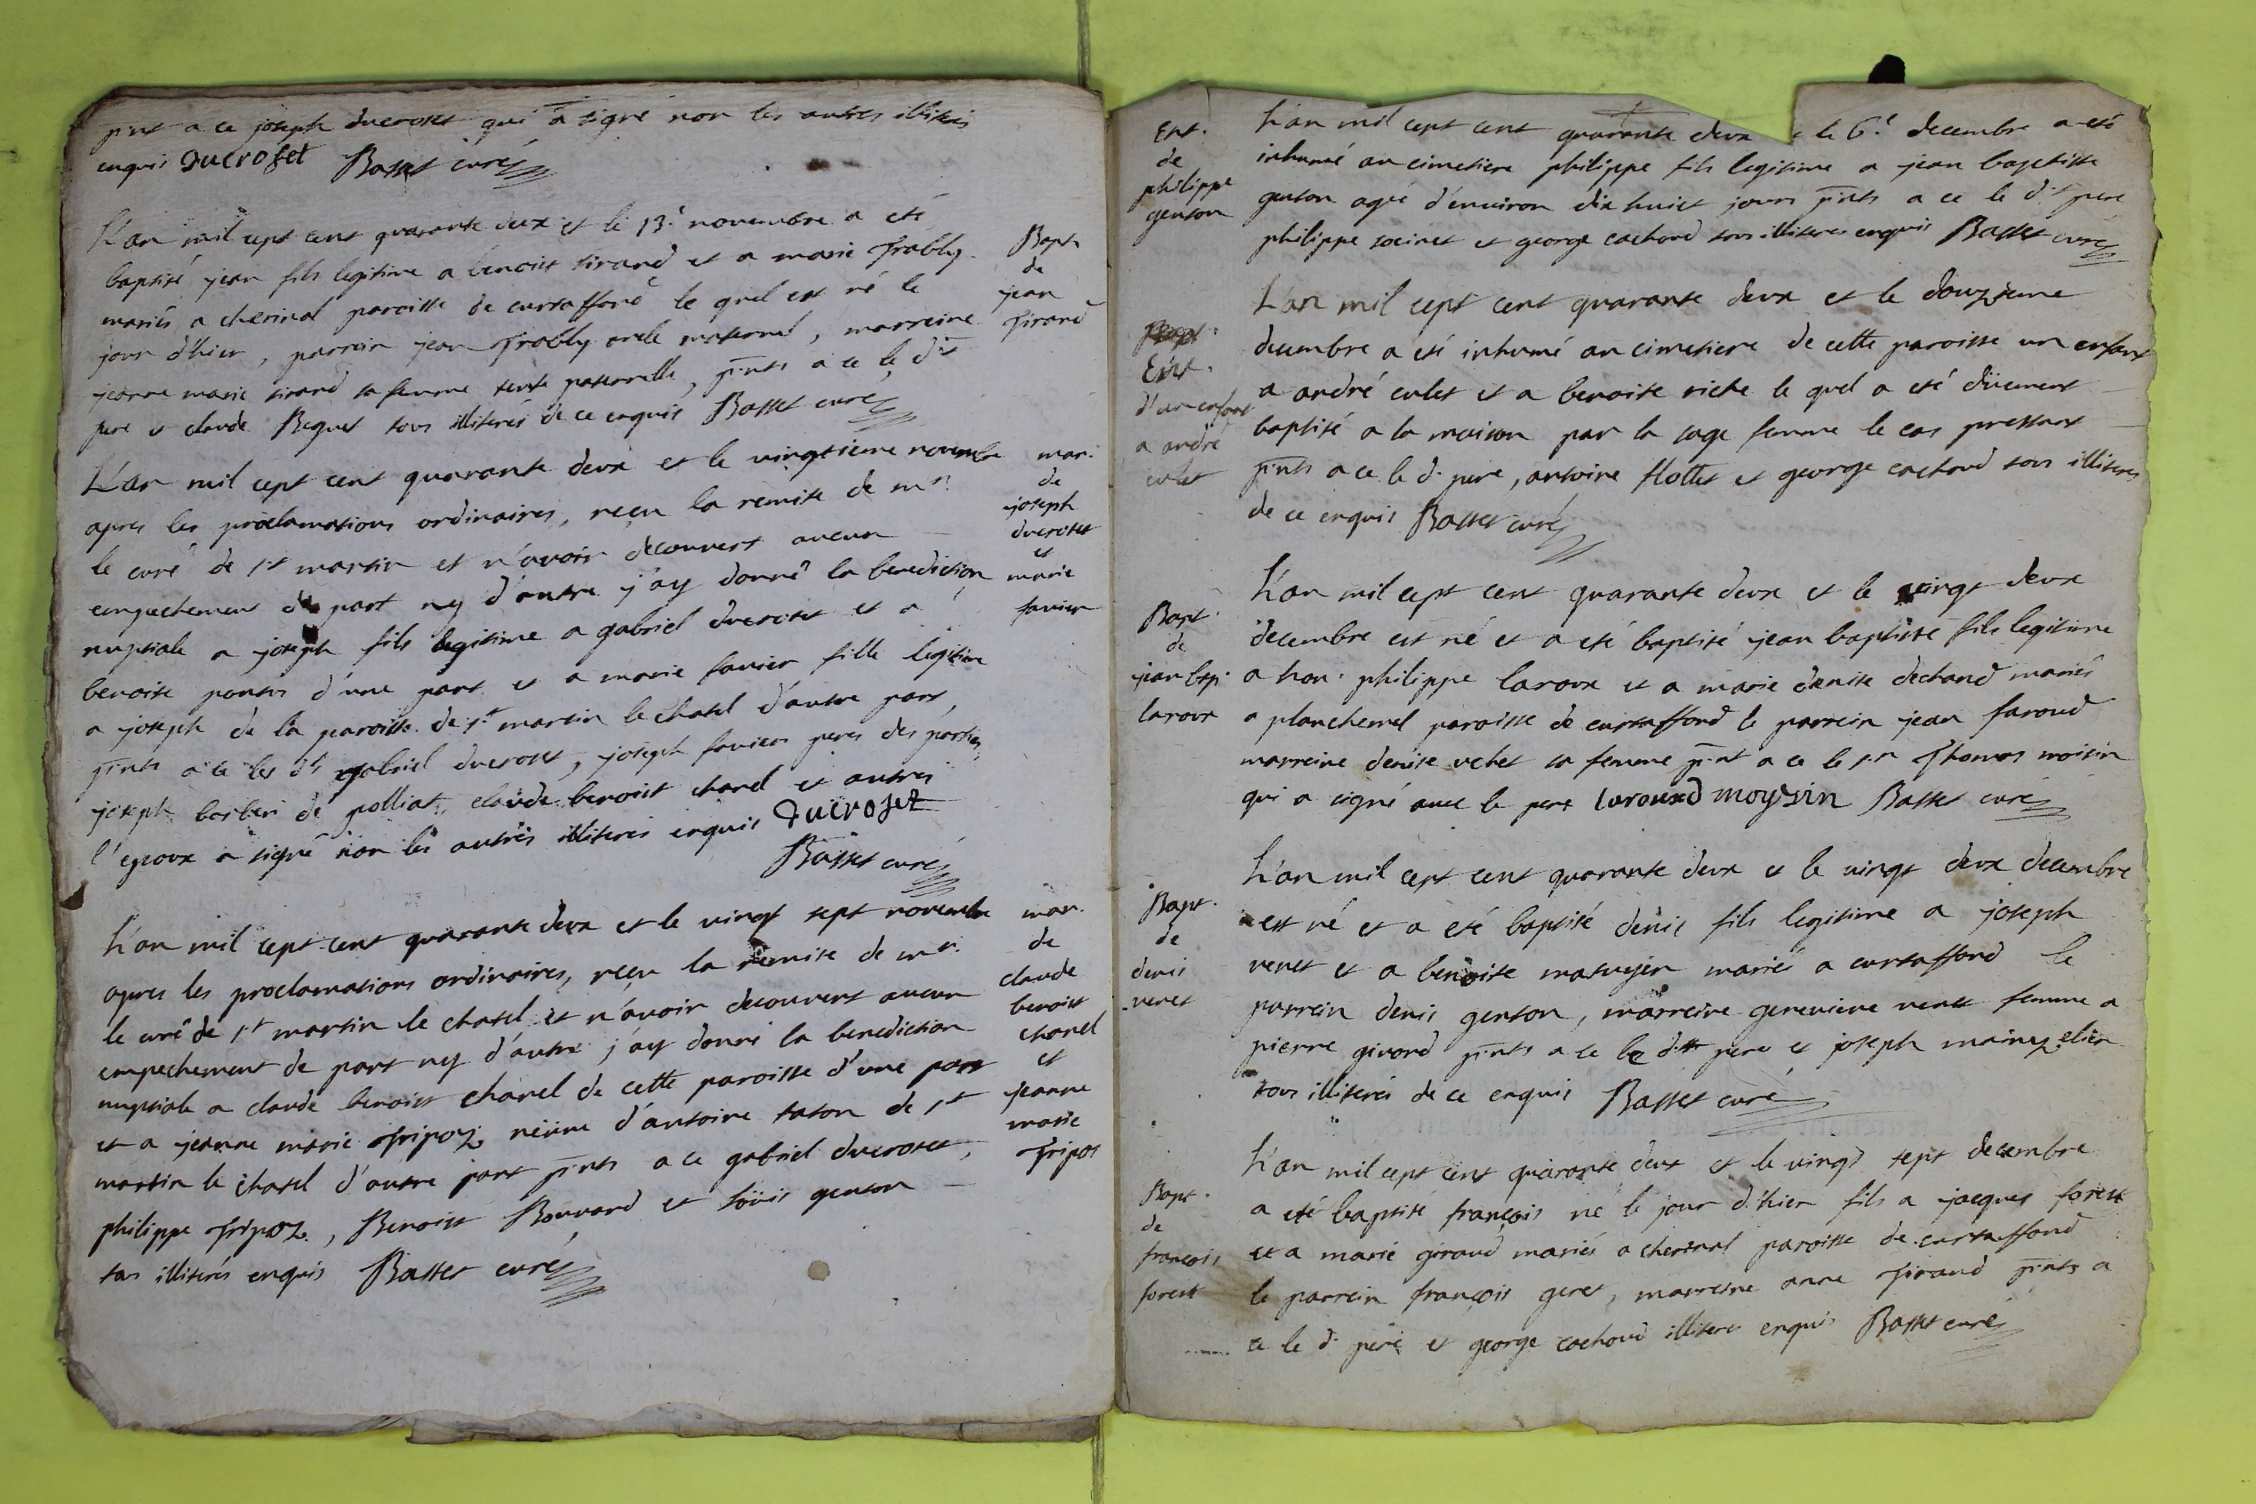 pnts a ce joseph ducroset qui a signé non les autres illiterés
enquis Ducroset Basset curé
L'an mil sept cent quarante deux et le 13e novembre a eté
baptisé jean fils legitime a benoist tirand et a marie Frobly
mariés a cherinal paroisse de curtaffond le quel est né le
jour d'hier, parrein jean Frobly oncle maternel, marreine
jeanne marie tirand sa femme tente paternelle, pnts a ce le dit
pere et claude Beguet tous illiterés de ce enquis Basset curé
Bapt.
de
jean
Tirand
L'an mil sept cent quarante deux et le vingtieme novembre
apres les proclamations ordinaires, reçu la remise de mr
le curé de st martin et n'avoir decouvert aucun
empechement de part ny d'autre j'ay donné la benediction
nuptiale a joseph fils legitime a gabriel ducroset et a
benoite d'une part et a marie favier fille legitime
a joseph de la paroisse de st martin le chatel d'autre part,
pnts a ce les dts gabriel ducroset, joseph favier peres des parties
joseph barberi de polliat, claude benoist chanel et autres
l'epoux a signé non les autres illiterés enquis Ducroset
Basset curé
mar.
de
joseph
ducroset
et
marie
favier
L'an mil sept cent quarante deux et le vingt sept novembre
apres les proclamations ordinaires, reçu la remise de mr
le curé de st martin le chatel et n'avoir decouvert aucun
empechement de part ny d'autre j'ay donné la benediction
nuptiale a claude benoist chanel de cette paroisse d'une part
et a jeanne marie Tripoz, d'antoine taton de st
martin le chatel d'autre part pnts a ce gabriel ducroset,
philippe Tripoz, Benoist Bouvard et loüis genton
tous illiterés enquis Basset curé
mar.
de
claude
benoist
chanel
et
jeanne
marie
Tripos
Ent.
de
philippe
genton
L'an mil sept cent quarante deux le 6e decembre a eté
inhumé au cimetiere philippe fils legitime a jean baptiste
genton agé d'environ dix huict jours pnts a ce le dt pere
philippe et george cachoud tous illiterés enquis Basset curé
Ent.
d'un enfant
a andré
culet
L'an mil sept cent quarante deux et le douzieme
decembre a eté inhumé au cimetiere de cette paroisse un enfant
a andré culet et a benoite riche le quel a eté düement
baptisé a la maison par la sage femme le cas pressant
pnts a ce le d. pere, antoine flottet et george cachoud tous illiterés
de ce enquis Basset curé
Bapt.
de
jean bap.
laroux
L'an mil sept cent quarante deux et le vingt deux
decembre est né et a eté baptisé jean baptiste fils legitime
a hon. philippe laroux et a marie denise dechaud mariés
a plancheznel paroisse de curtaffond le parrein jean faroud
marreine denise vehet sa femme pnt a ce le sr Thomas moisin
qui a signé avec le pere laround moysin Basset curé
Bapt.
de
denis
venet
L'an mil sept cent quarante deux et le vingt deux decembre
est né et a eté baptisé denis fils legitime a joseph
venet et a benoite mariés a curtaffond le
parrein denis genton, marreine genevieve venet femme a
pierre givord pnts a ce le dit pere et joseph
tous illiterés de ce enquis Basset curé
Bapt.
de
francois
forest
L'an mil sept cent quarante deux et le vingt sept decembre
a eté baptisé françois né le jour d'hier fils a jacques forest
et a marie giraud mariés a cherinal paroisse de curtaffond
le parrein françois geret, marreine anne Tirand pnts a
ce le d. pere et george cachoud illiteres enquis Basset curé